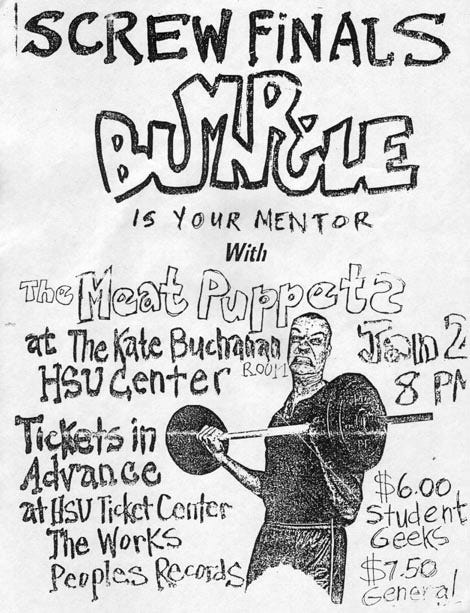 SCREW FINALS
MR.
BUNGLE
IS YOUR MENTOR
With
The Meat Puppets
at The Kate Buchanan
ROOM
HSU Center
Jan 2
8 PM
Tickets in
Advance
at HSU Ticket Center
The Works
Peoples Records
$6.00
Student
Geeks
$7.50
General